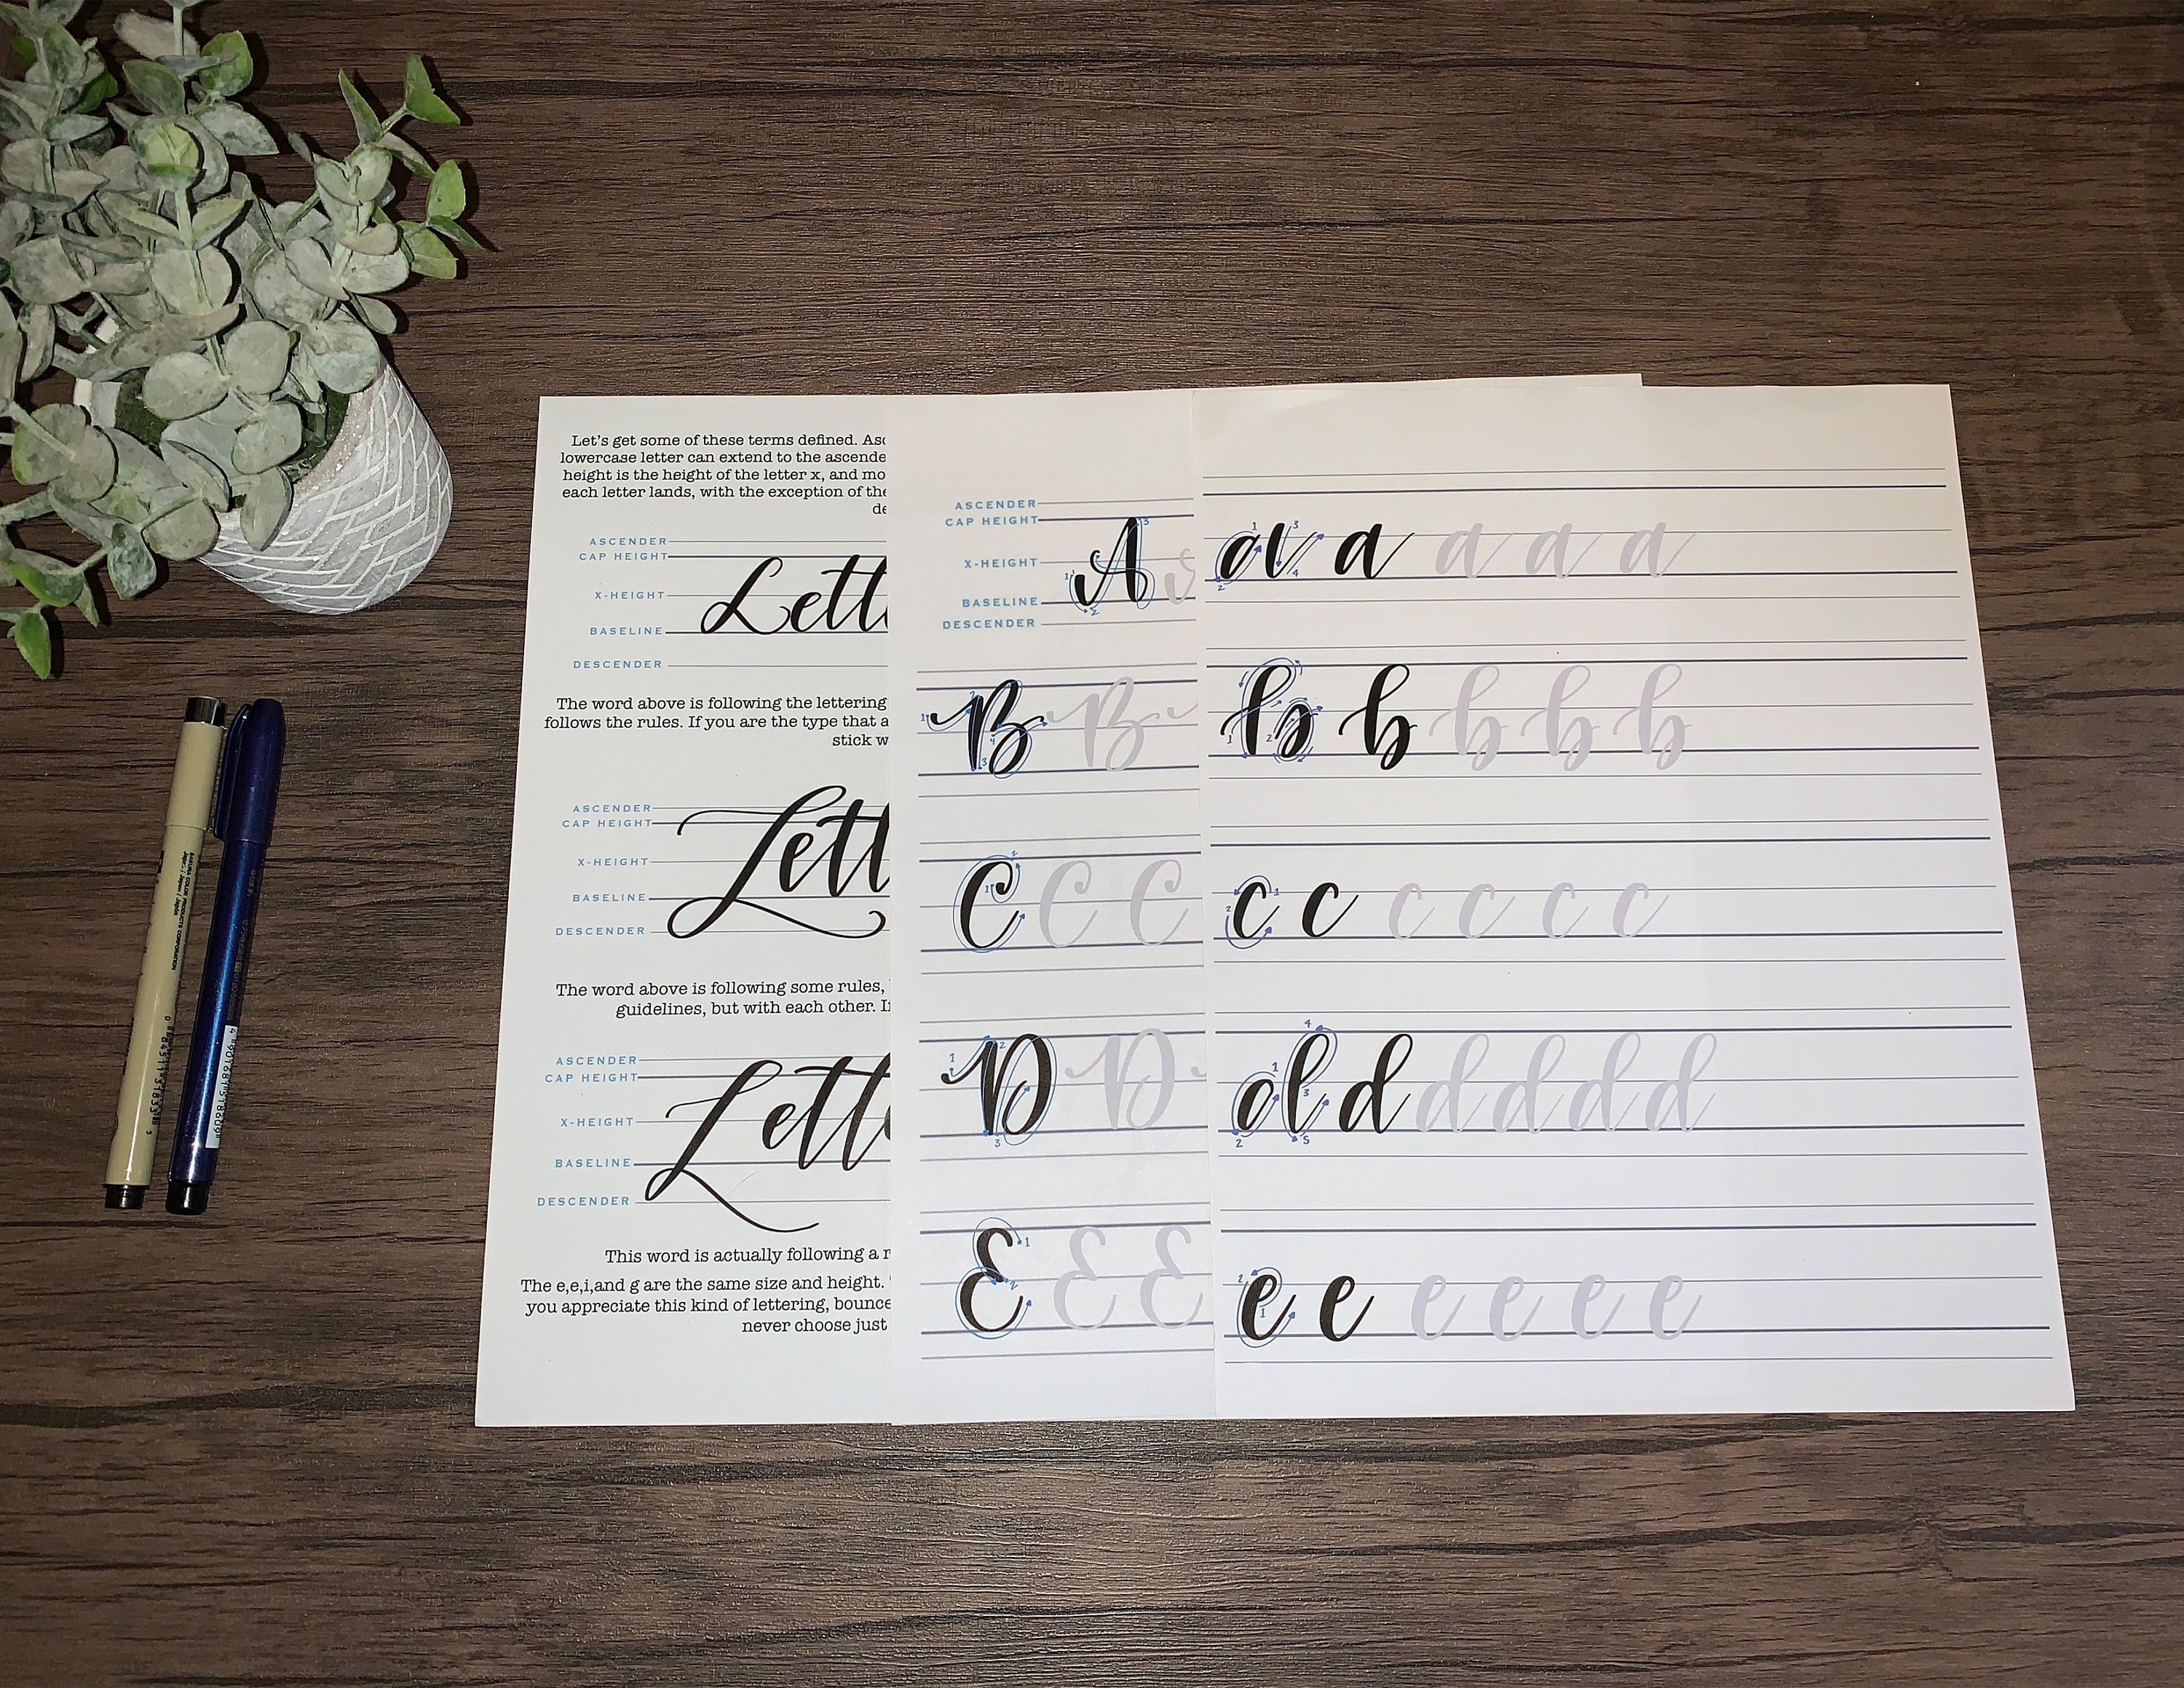 Let's get some of these terms defined. Asc
lowercase letter can extend to the ascende
height is the height of the letter x, and mo
each letter lands, with the exception of the
de
ASCENDER
CAP HEIGHT
X-HEIGHT
BASELINE
DESCENDER
Lett
The word above is following the lettering
follows the rules. If you are the type that a
stick w
ASCENDER
CAP HEIGHT
X-HEIGHT
BASELINE
DESCENDER
Lett
The word above is following some rules,
guidelines, but with each other. If
ASCENDER
CAP HEIGHT
X-HEIGHT
BASELINE
DESCENDER
Lette
This word is actually following a r
The e,e,i,and g are the same size and height.
you appreciate this kind of lettering, bounce
never choose just
ASCENDER
CAP HEIGHT
X-HEIGHT
BASELINE
DESCENDER
A
B B
C C C
D D
E E E
a a a a a
b b b b b
c c c c c c
d d d d d d
e e e e e e
SAKURA COLOR PRODUCTS CORPORATION